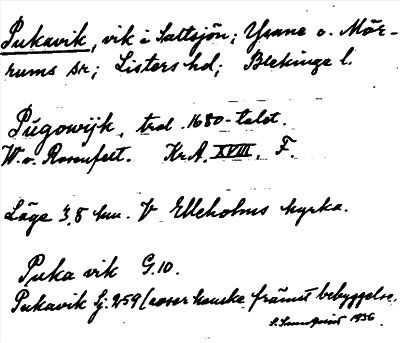 Pukavik, vik i Saltsjön; Ysane o. Mör-
rums sn; Listers hd; Blekinge l.
Půgowijk, trol. 1680-talet.
W. v. Rosenfeldt. Kr.A. XVIII. F.
Läge 3,8 km. V Elleholms kyrka.
Puka vik G.10.
Pukavik Lj. 259 (avser kanske främst bebyggelse.
1936